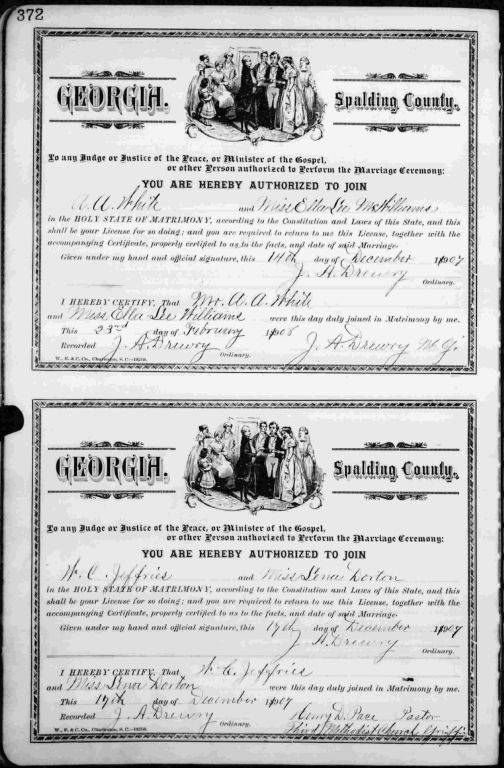 372
GEORGIA. Spalding County.
To any Judge or Justice of the Peace, or Minister of the Gospel,
or other Person authorized to Perform the Marriage Ceremony:
YOU ARE HEREBY AUTHORIZED TO JOIN
A. A. White and Miss Ella Lee McWilliams
in the HOLY STATE OF MATRIMONY, according to the Constitution and Laws of this State, and this
shall be your License for so doing; and you are required to return to me this License, together with the
accompanying Certificate, properly certified to as to the facts, and date of said Marriage.
Given under my hand and official signature, this 14th day of December 1907
J. A. Drewry
Ordinary.
I HEREBY CERTIFY, That Mr. A. A. White
and Miss Ella Lee Williams were this day duly joined in Matrimony by me.
This 23rd day of February 1908
Recorded J. A. Drewry J. A. Drewry M. G.
Ordinary.
W., E. & C. Co., Charleston, S. C.
GEORGIA. Spalding County.
To any Judge or Justice of the Peace, or Minister of the Gospel,
or other Person authorized to Perform the Marriage Ceremony:
YOU ARE HEREBY AUTHORIZED TO JOIN
W. C. Jeffries and Miss Lena Dorton
in the HOLY STATE OF MATRIMONY, according to the Constitution and Laws of this State, and this
shall be your License for so doing; and you are required to return to me this License, together with the
accompanying Certificate, properly certified to as to the facts, and date of said Marriage.
Given under my hand and official signature, this 17th day of December 1907
J. A. Drewry
Ordinary.
I HEREBY CERTIFY, That W. C. Jeffries
and Miss Lena Dorton were this day duly joined in Matrimony by me.
This 19th day of December 1907
Recorded J. A. Drewry Henry D. Pace Pastor
Ordinary. Third Methodist Church Griffin
W., E. & C. Co., Charleston, S. C.